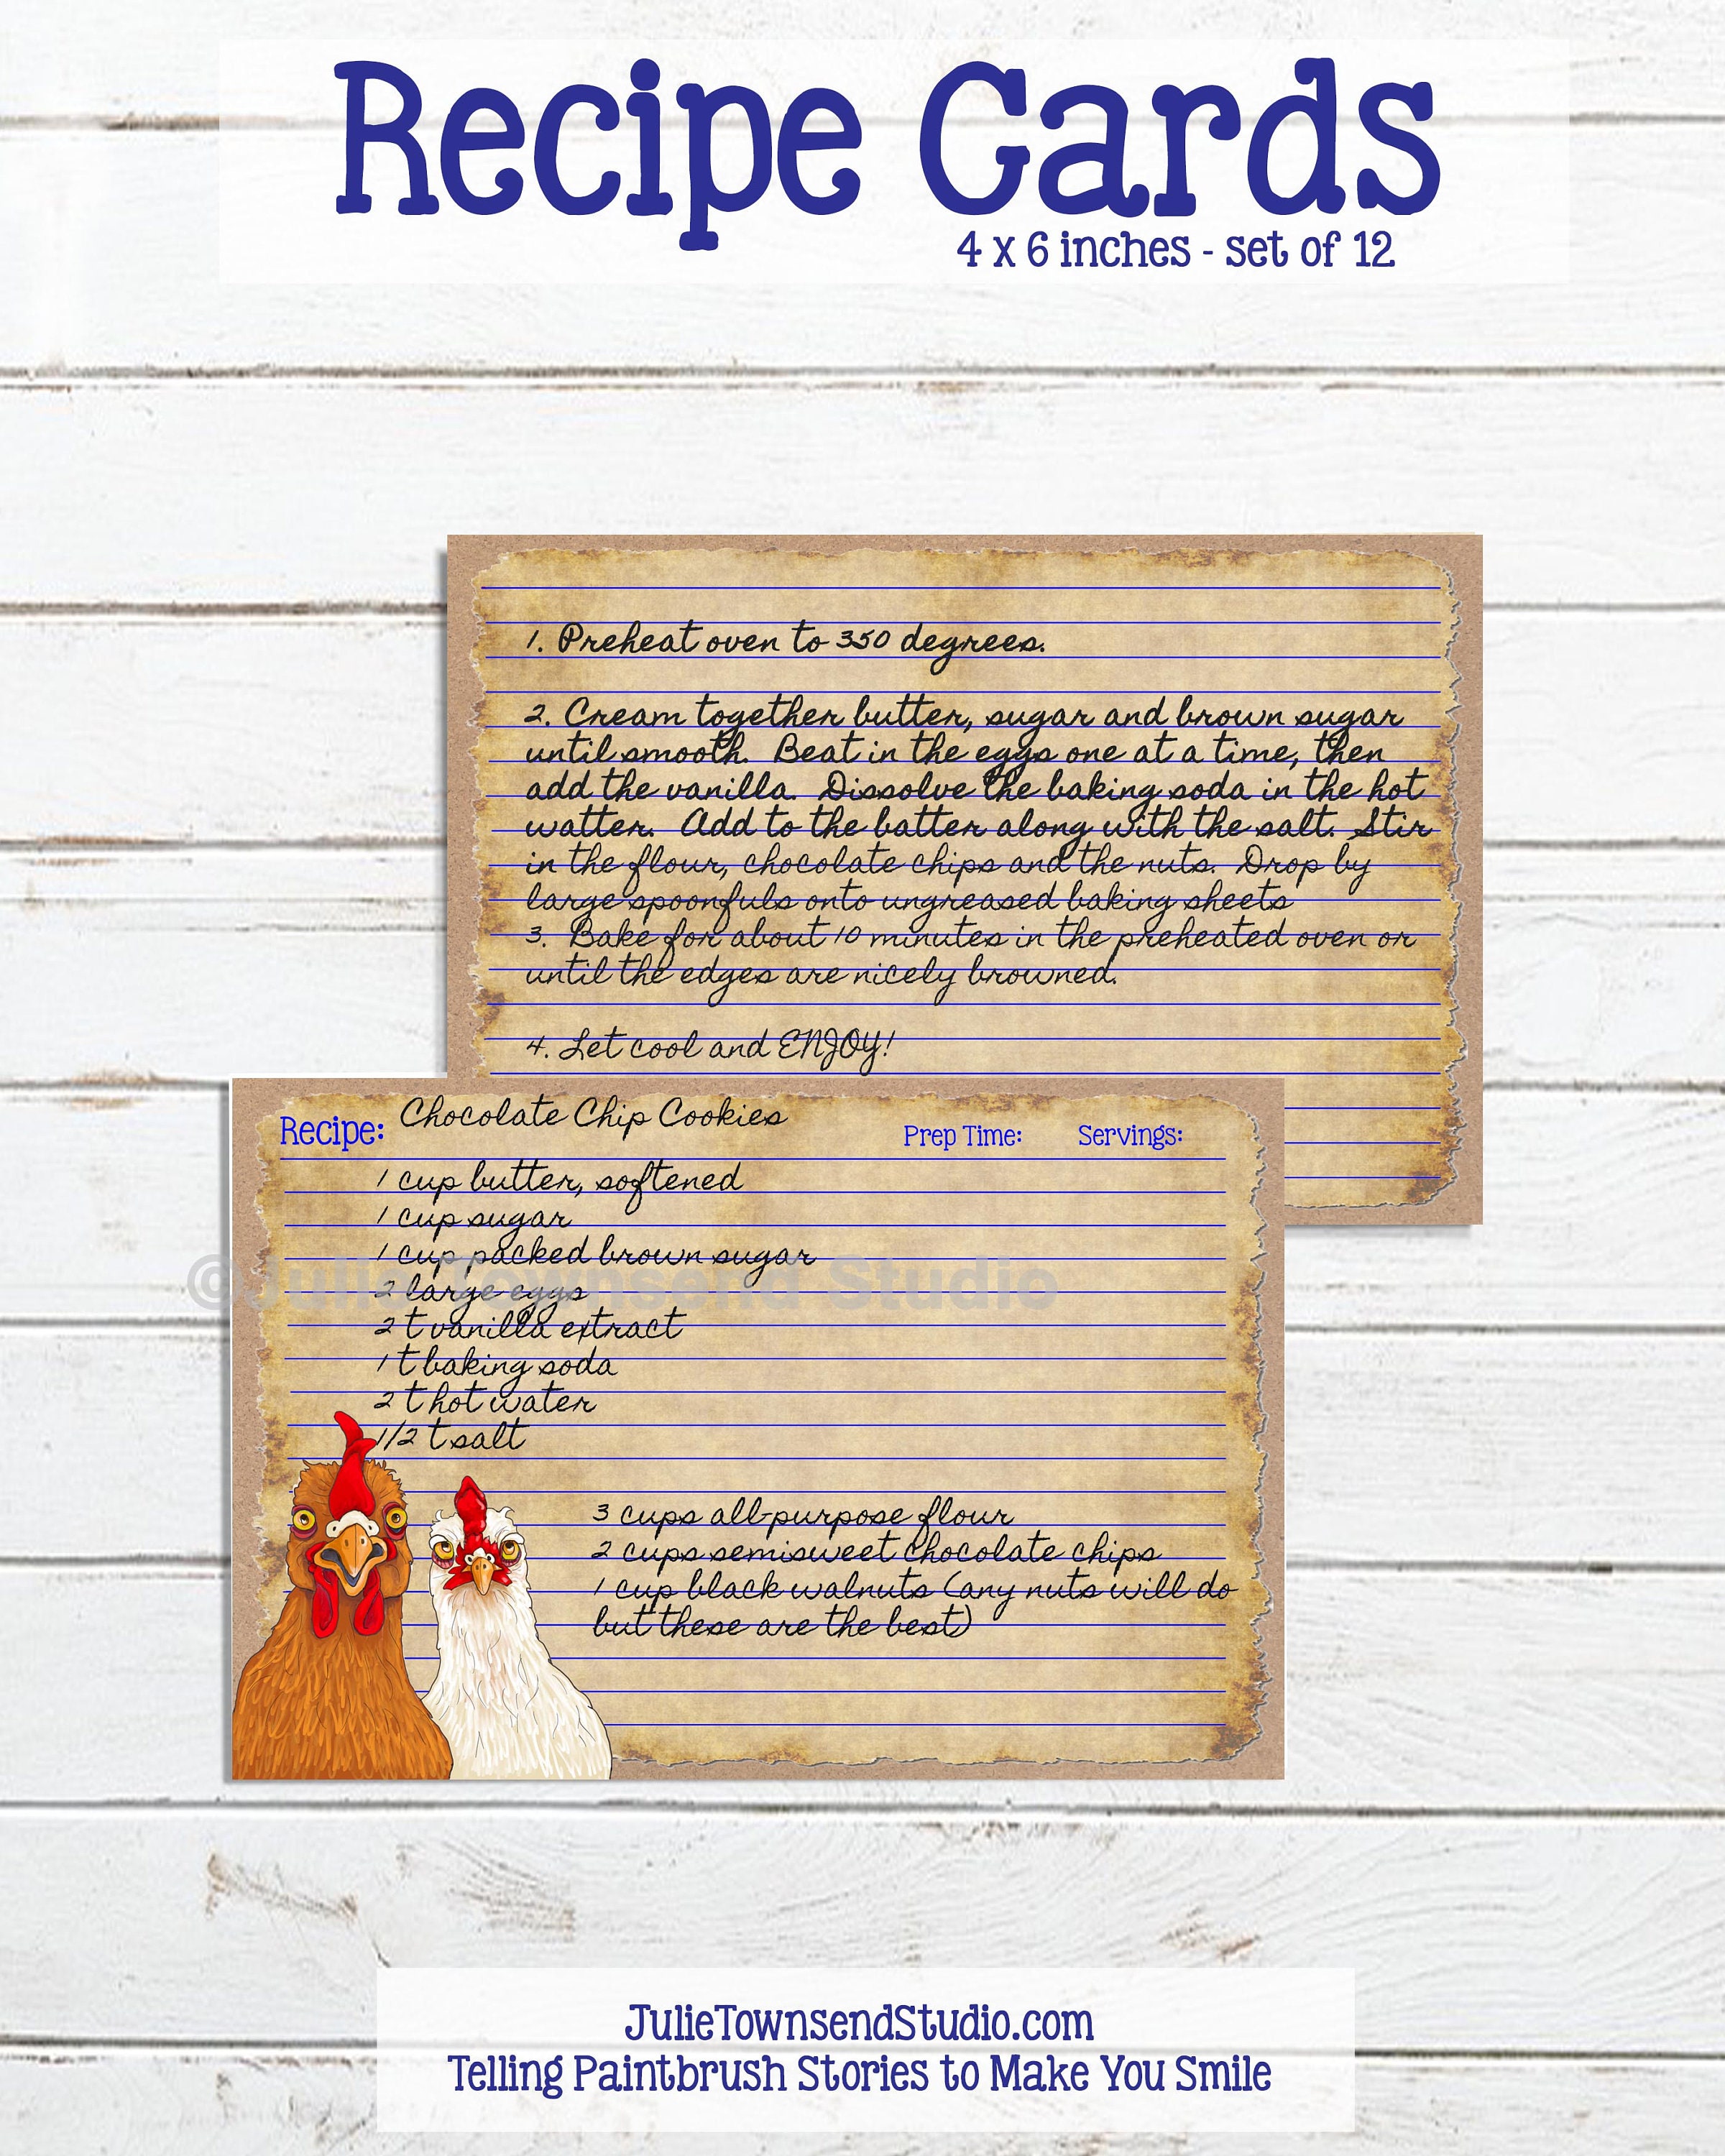 Recipe Cards
4 x 6 inches - set of 12
1. Preheat oven to 350 degrees.
2. Cream together butter, sugar and brown sugar
until smooth. Beat in the eggs one at a time, then
add the vanilla. Dissolve the baking soda in the hot
watter. Add to the batter along with the salt. Stir
in the flour, chocolate chips and the nuts. Drop by
large spoonfuls onto ungreased baking sheets
3. Bake for about 10 minutes in the preheated oven or
until the edges are nicely browned.
4. Let cool and ENJOY!
Recipe: Chocolate Chip Cookies Prep Time: Servings:
1 cup butter, softened
1 cup sugar
1 cup packed brown sugar
©Julie Townsend Studio
2 large eggs
2 t vanilla extract
1 t baking soda
2 t hot water
1/2 t salt
3 cups all-purpose flour
2 cups semisweet chocolate chips
1 cup black walnuts (any nuts will do
but these are the best)
JulieTownsendStudio.com
Telling Paintbrush Stories to Make You Smile